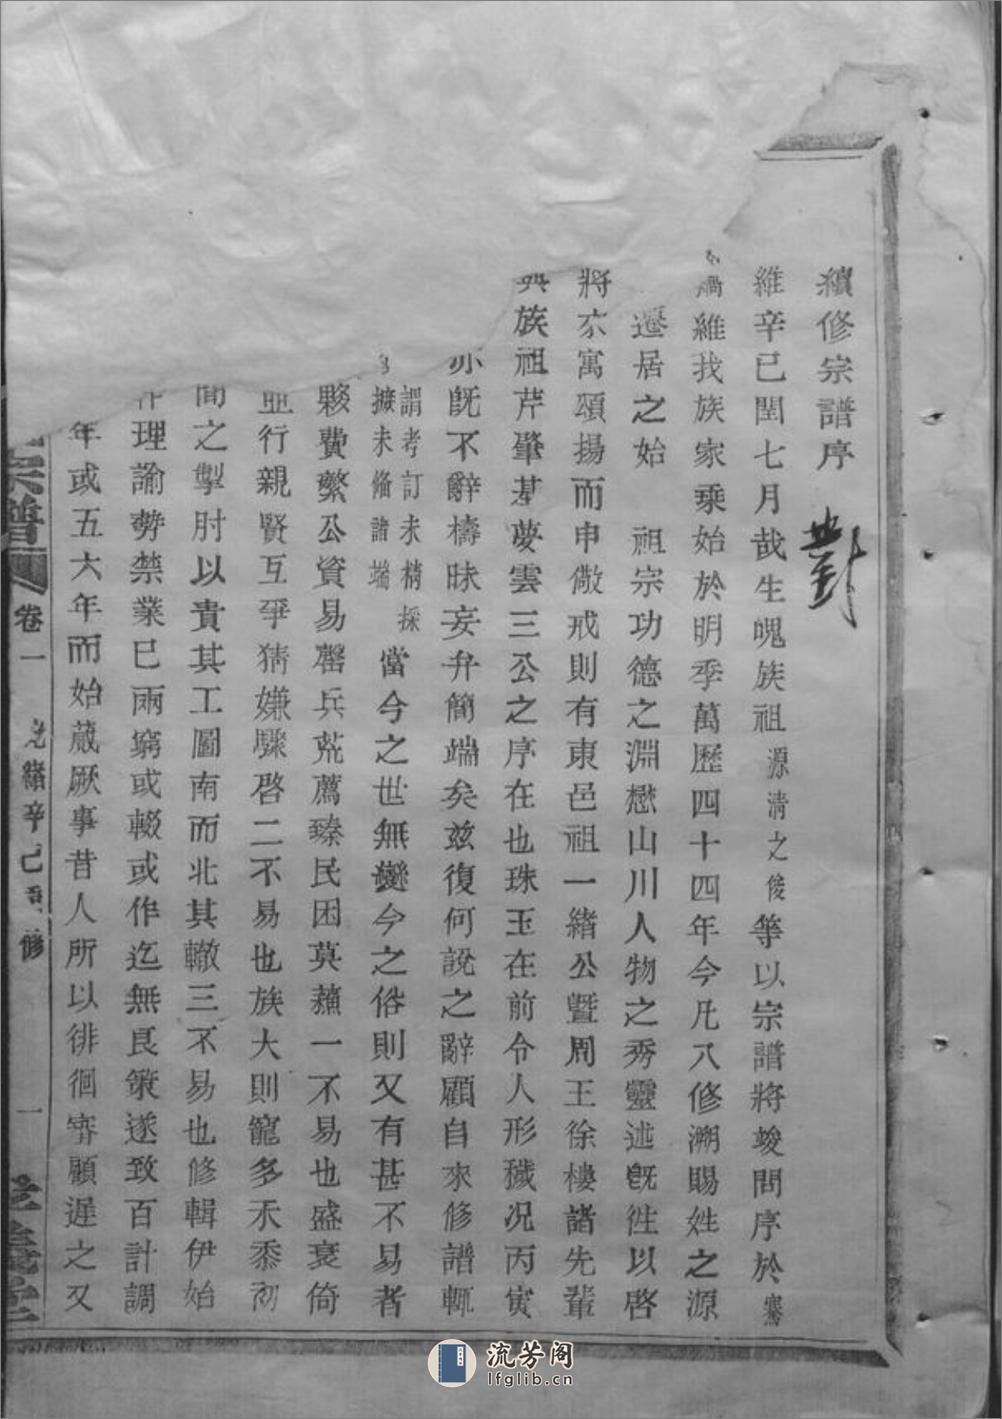 續修宗譜序
對
維辛巳閏七月哉生魄族祖源清之俊等以宗譜將竣問序於騫
騫維我族家乘始於明季萬歷四十四年今凡八修溯賜姓之源
遷居之始 祖宗功德之淵懋山川人物之秀靈述旣徃以啓
將來寓頌揚而申儆戒則有東邑祖一緒公曁周王徐樓諸先輩
與族祖芹肇基夢雲三公之序在也珠玉在前令人形穢况丙寅
亦旣不辭檮昧妄弁簡端矣兹復何說之辭顧自來修譜輒
謂考訂未精採
擴未僃諸端
當今之世無變今之俗則又有甚不易者
夥費繁公資易罄兵荒薦臻民困莫蘓一不易也盛衰倚
並行親賢互爭猜嫌驟啓二不易也族大則寵多禾黍初
間之掣肘以責其工圖南而北其轍三不易也修輯伊始
作理諭勢禁業已兩窮或輟或作迄無良策遂致百計調
年或五六年而始蕆厥事昔人所以徘徊審顧遲之又
宗譜
卷一
光緒辛巳重修
一
孝義堂
流芳阁
lfglib.cn